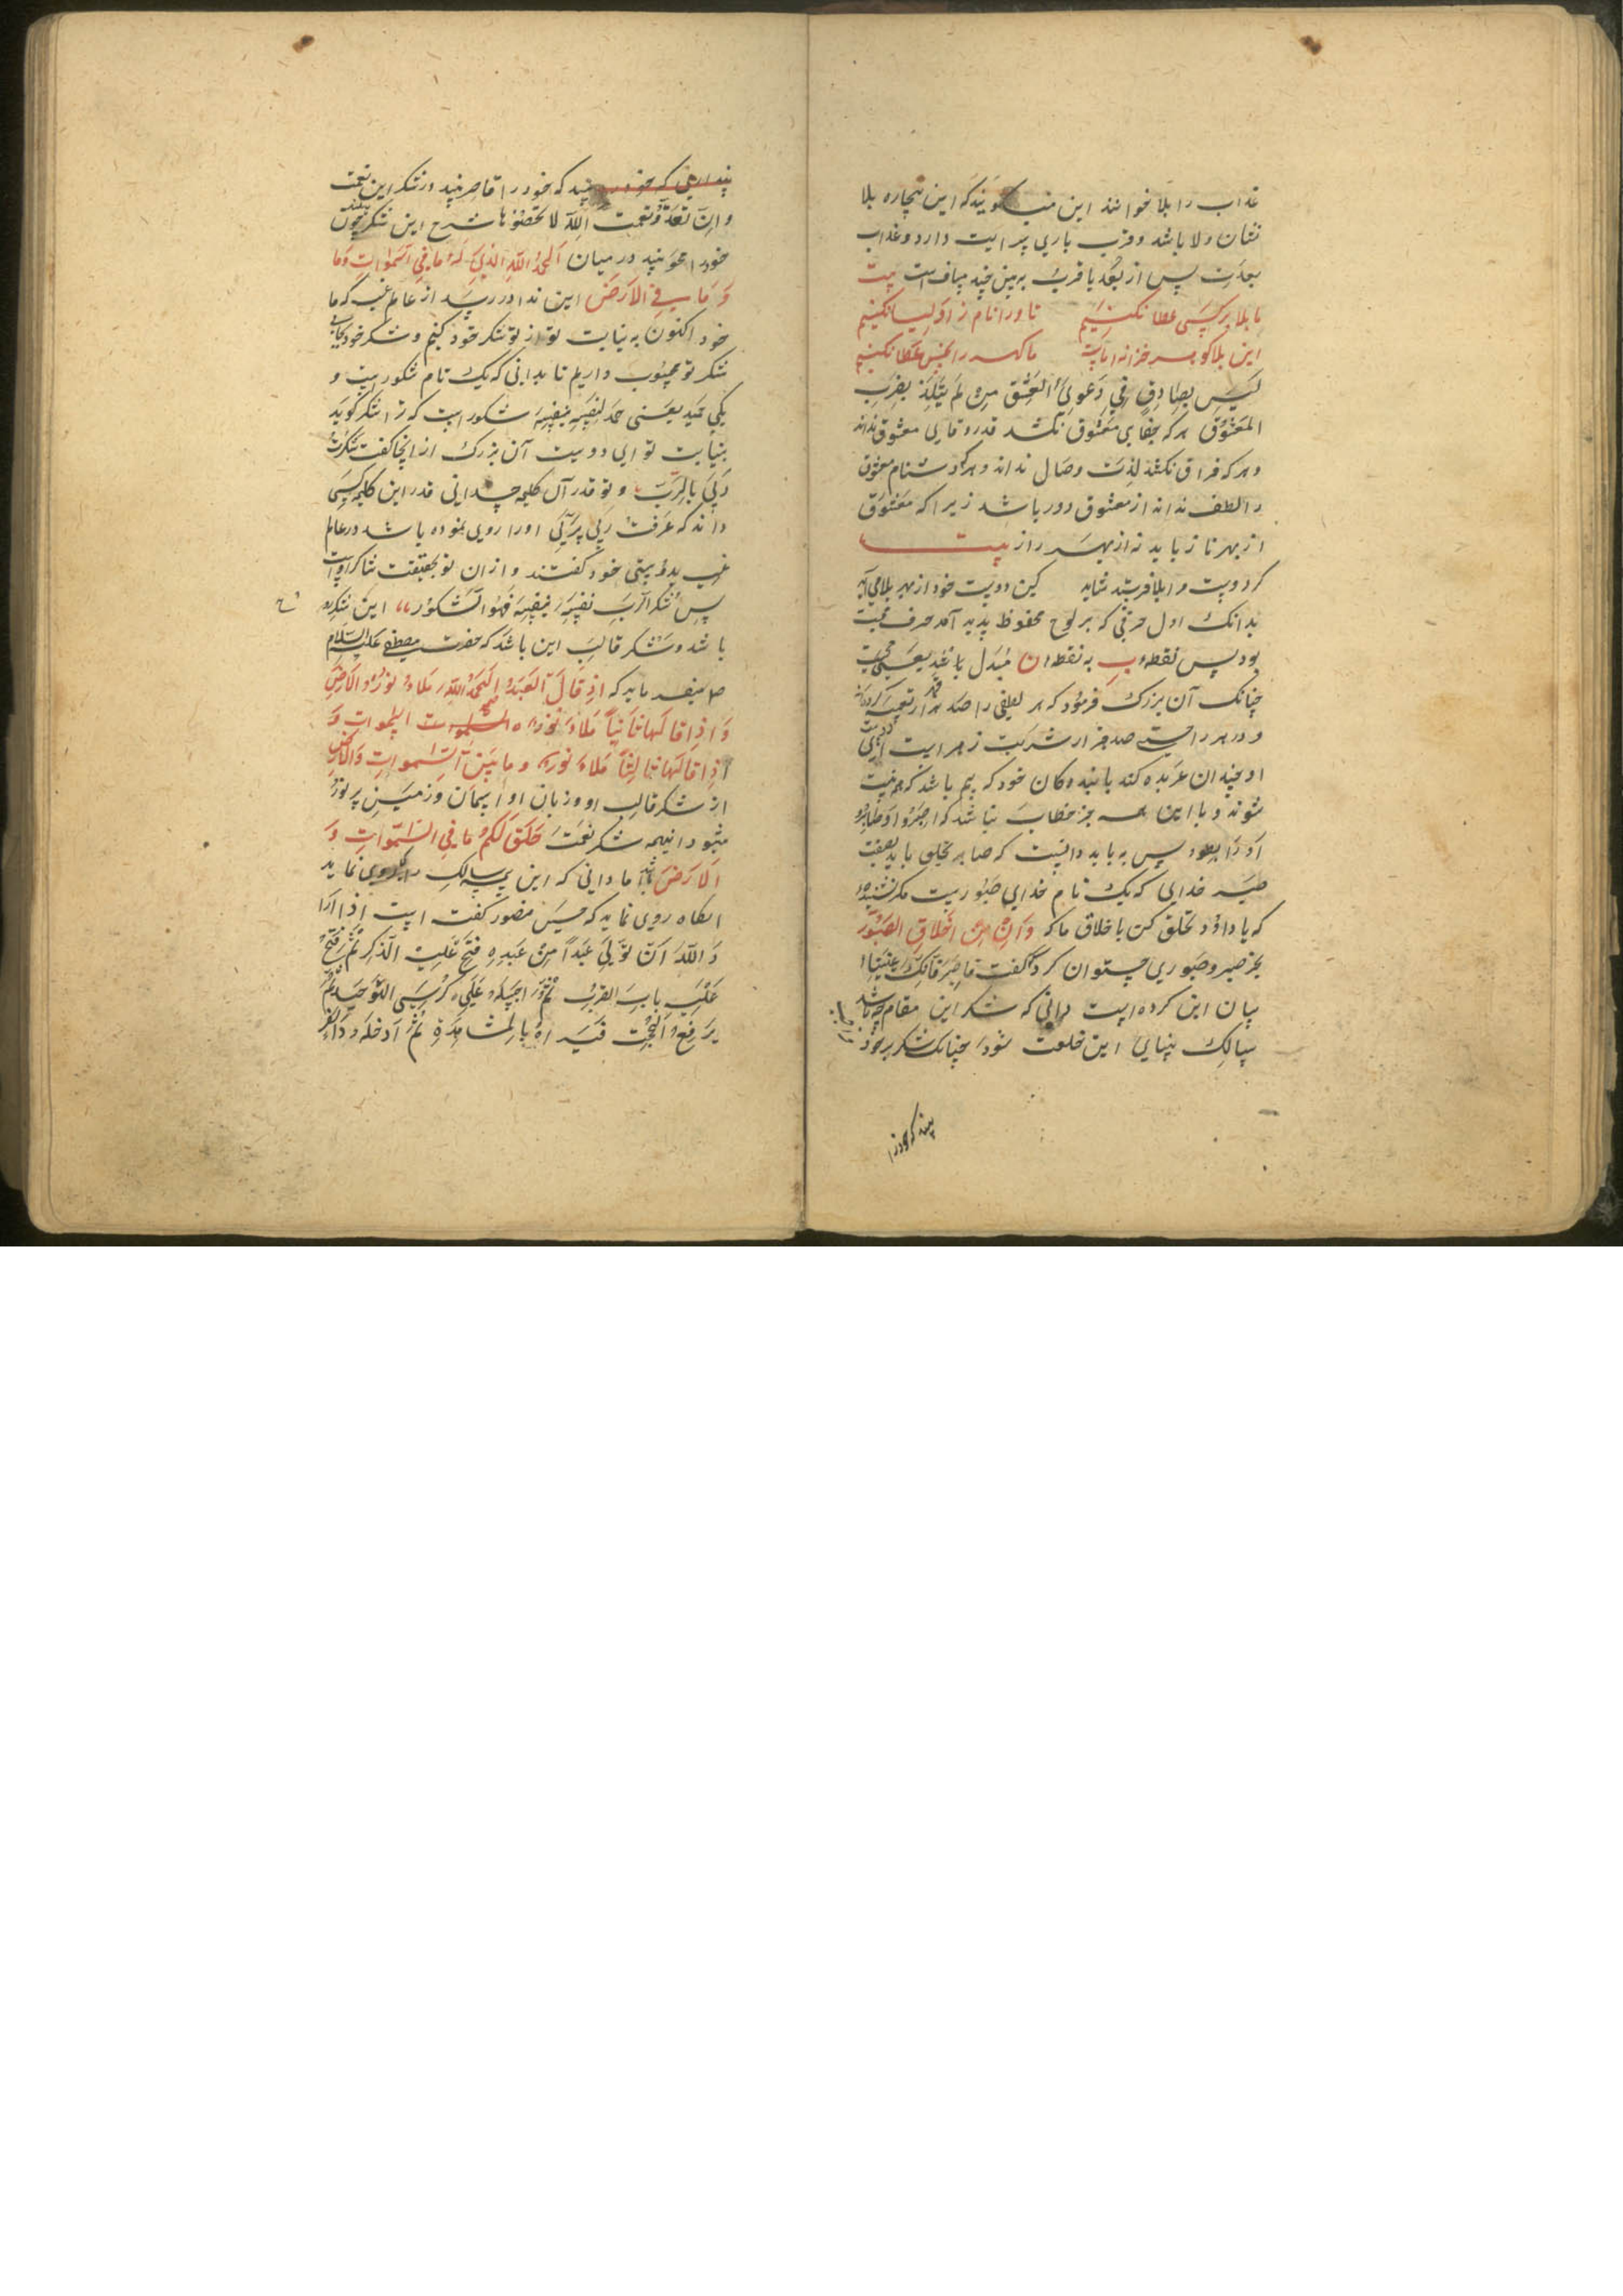 عذاب را بلا خوانند این میگویند که این بیچاره بلا
نشان ولا باشد و قرب باری سرایت دارد و عذاب
بعدست پس از بعد یا قرب به بین چند مسافت است بیت
ما بلا بر کسی عطا نکنیم تا ورا نام ز اولیا نکنیم
این بلا گوهر خزانه ماست ما گهر را بخس عطا نکنیم
لیس بصادق فی دعوی العشق من لم یتلذذ بضرب
المعشوق هر که جفای معشوق نکشد قدر وفای معشوق نداند
و هر که فراق نکشد لذت وصال نداند و هر که دشنام معشوق
را لطف نداند از معشوق دور باشد زیرا که معشوق
از بهر ناز باید نه از بهر راز بیت
گر دوست مرا بلا فرستد شاید کین دوست خود از بهر بلا می باید
بدانک اول حرفی که بر لوح محفوظ پدید آمد حرف محبت
بود پس نقطه ب به نقطه ن مبدل باشد یعنی محنت
چنانک آن بزرگ فرمود که هر لطفی را صد هزار تعبیه کرده اند
و در هر راحتی صد هزار شربت زهر است
او چندان عربده کند با بندگان خود که بیم باشد که هم نیست
شوند و با این همه جز خطاب نباشد که اصبروا و صابروا
او را بعد و پس به باید دانست که صابر تخلق باید بصفت
خدای که یک نام خدای صبورست مگر نشنیده
که یا داود تخلق کن باخلاق ما که و ان من اخلاقی الصبور
بجز صبر و صبوری چتوان کرد گفت فاصبر فانک باعیننا
بیان این کرده است دانی که شکر این مقام چه باشد
سالک بینای این خلعت شود چنانک شکر بر خود
بیند که خود را
بیند که خود را قاصر بیند در شکر این نعمت
و ان تعدوا نعمت الله لا تحصوها شرح این شکر چون
خود را محو بیند در میان الحمد لله الذی له ما فی السموات و ما
و ما فی الارض این ندا در رسد از عالم غیب که ما
خود اکنون به نیابت تو از تو شکر خود کنیم و شکر خود بجای
شکر تو محسوب داریم تا بدانی که یک نام شکورست و
یکی حمید یعنی حمد لنفسه بنفسه شکور است که ترا شکر گوید
بنیابت تو ای دوست آن بزرگ از اینجا گفت شکرت
ربی بالرب و تو قدر آن کلمه چه دانی قدر این کلمه کسی
داند که عرفت ربی بربی او را روی نموده باشد در عالم
غیب بدوستی خود گفتند و از آن تو بحقیقت شاکر اوست
پس شکر الرب نفسه بنفسه فهو الشکور این شکر
باشد و شکر قالب این باشد که حضرت مصطفی علیه السلام
میفرماید که اذ قال العبد الحمد لله ملاء نوره الارض
و اذا قالها ثانیا ملاء نوره السموات و
اذا قالها ثالثا ملاء نوره ما بین السموات والارض
از شکر قالب او و زبان او آسمان و زمین پر نور
شود اینهمه شکر نعمت خلق لکم ما فی السموات و
الارض باشد اما دانی که این سالک را کی روی نماید
آنگاه روی نماید که حسین منصور گفت است اذا اراد
الله ان تولی عبدا من عبیده فتح علیه الذکر ثم فتح
علیه باب القرب ثم اجلسه علی کرسی التوحید ثم
یرفع الحجب فیراه بالمشاهدة ثم ادخله دار الفر